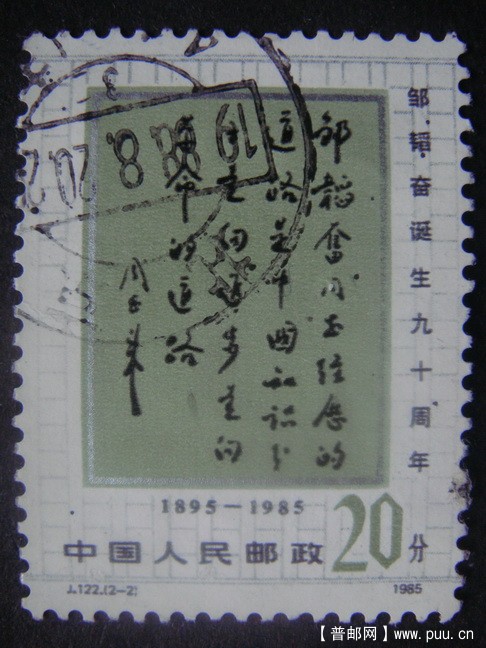 邹韬奋诞生九十周年
邹韬奮同志经历的
道路是中國知识分
子走向进步走向
革命的道路
周恩来
1895－1985
中国人民邮政 20分
J.122.(2-2) 1985
【普邮网】www.puu.cn